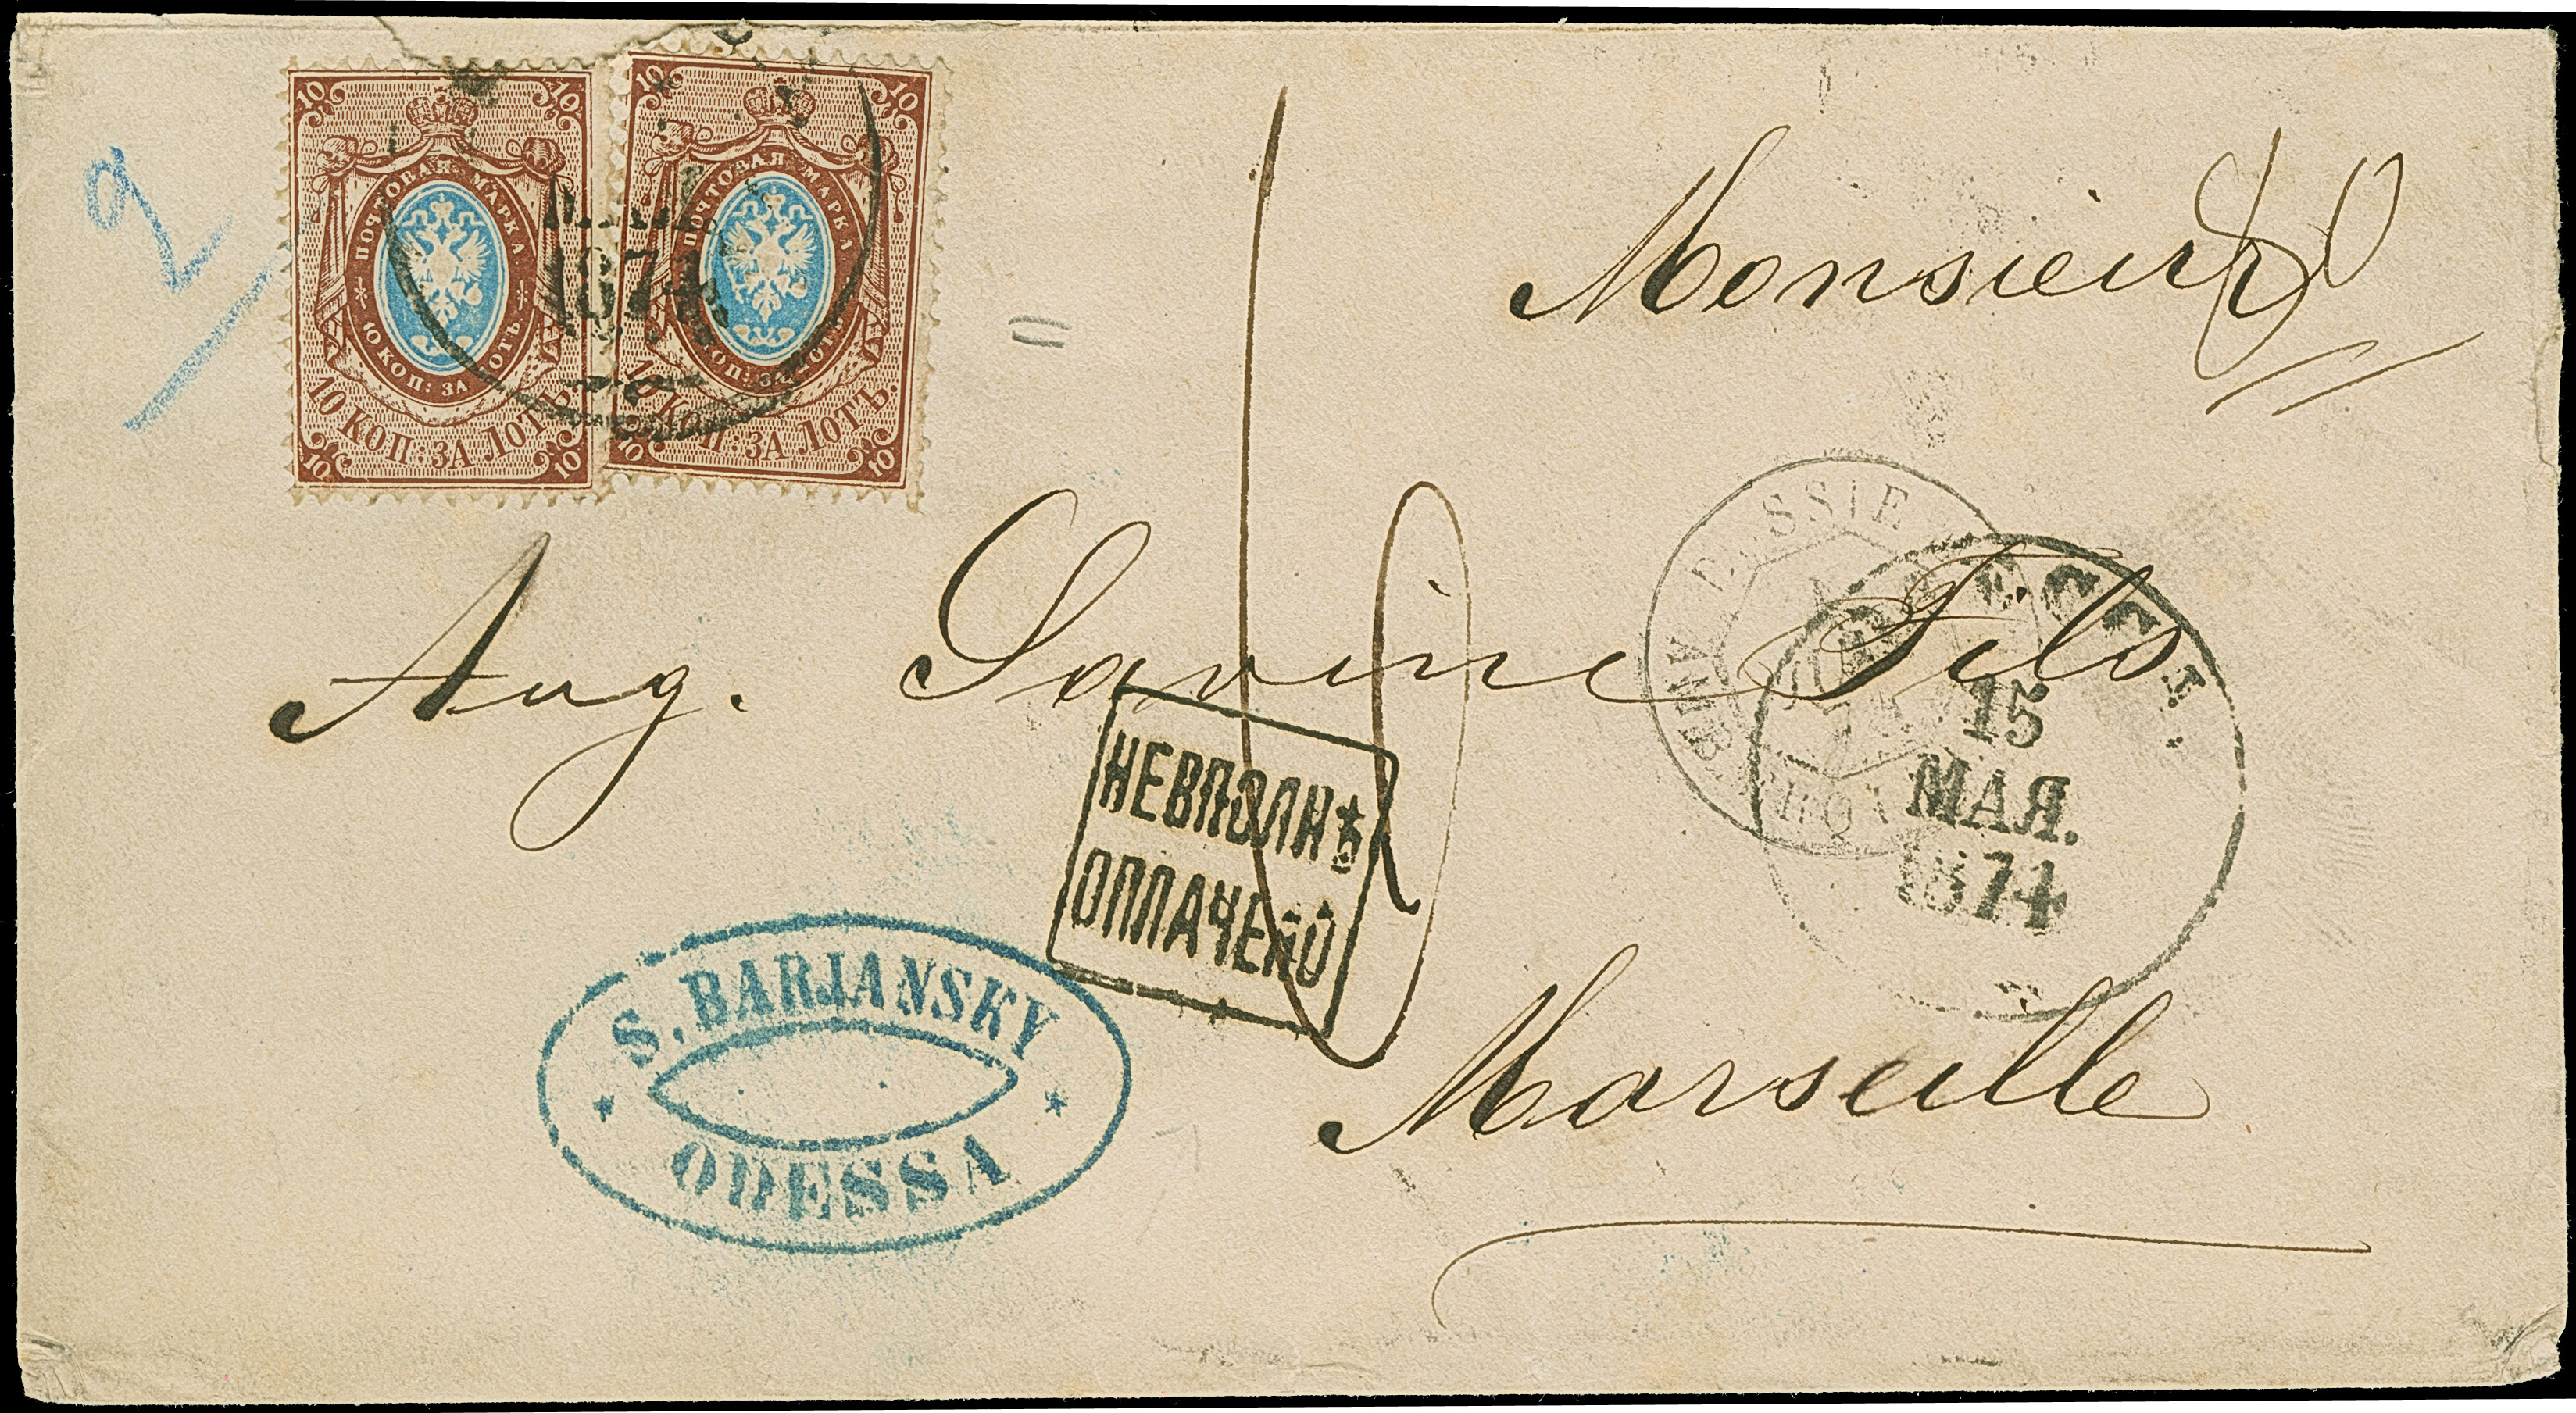 2
10 10
ПОЧТОВАЯ МАРКА
10 КОП: ЗА ЛОТЪ.
10 КОП: ЗА ЛОТЪ.
10 10
10 10
ПОЧТОВАЯ МАРКА
КОП: ЗА ЛОТЪ.
10 КОП: ЗА ЛОТЪ.
10 10
1874
Monsieur
Aug. Savine Fils
ОДЕССА
15
МАЯ.
1874
НЕВПОЛНѢ
ОПЛАЧЕНО
S. BARJANSKY
ODESSA
Marseille